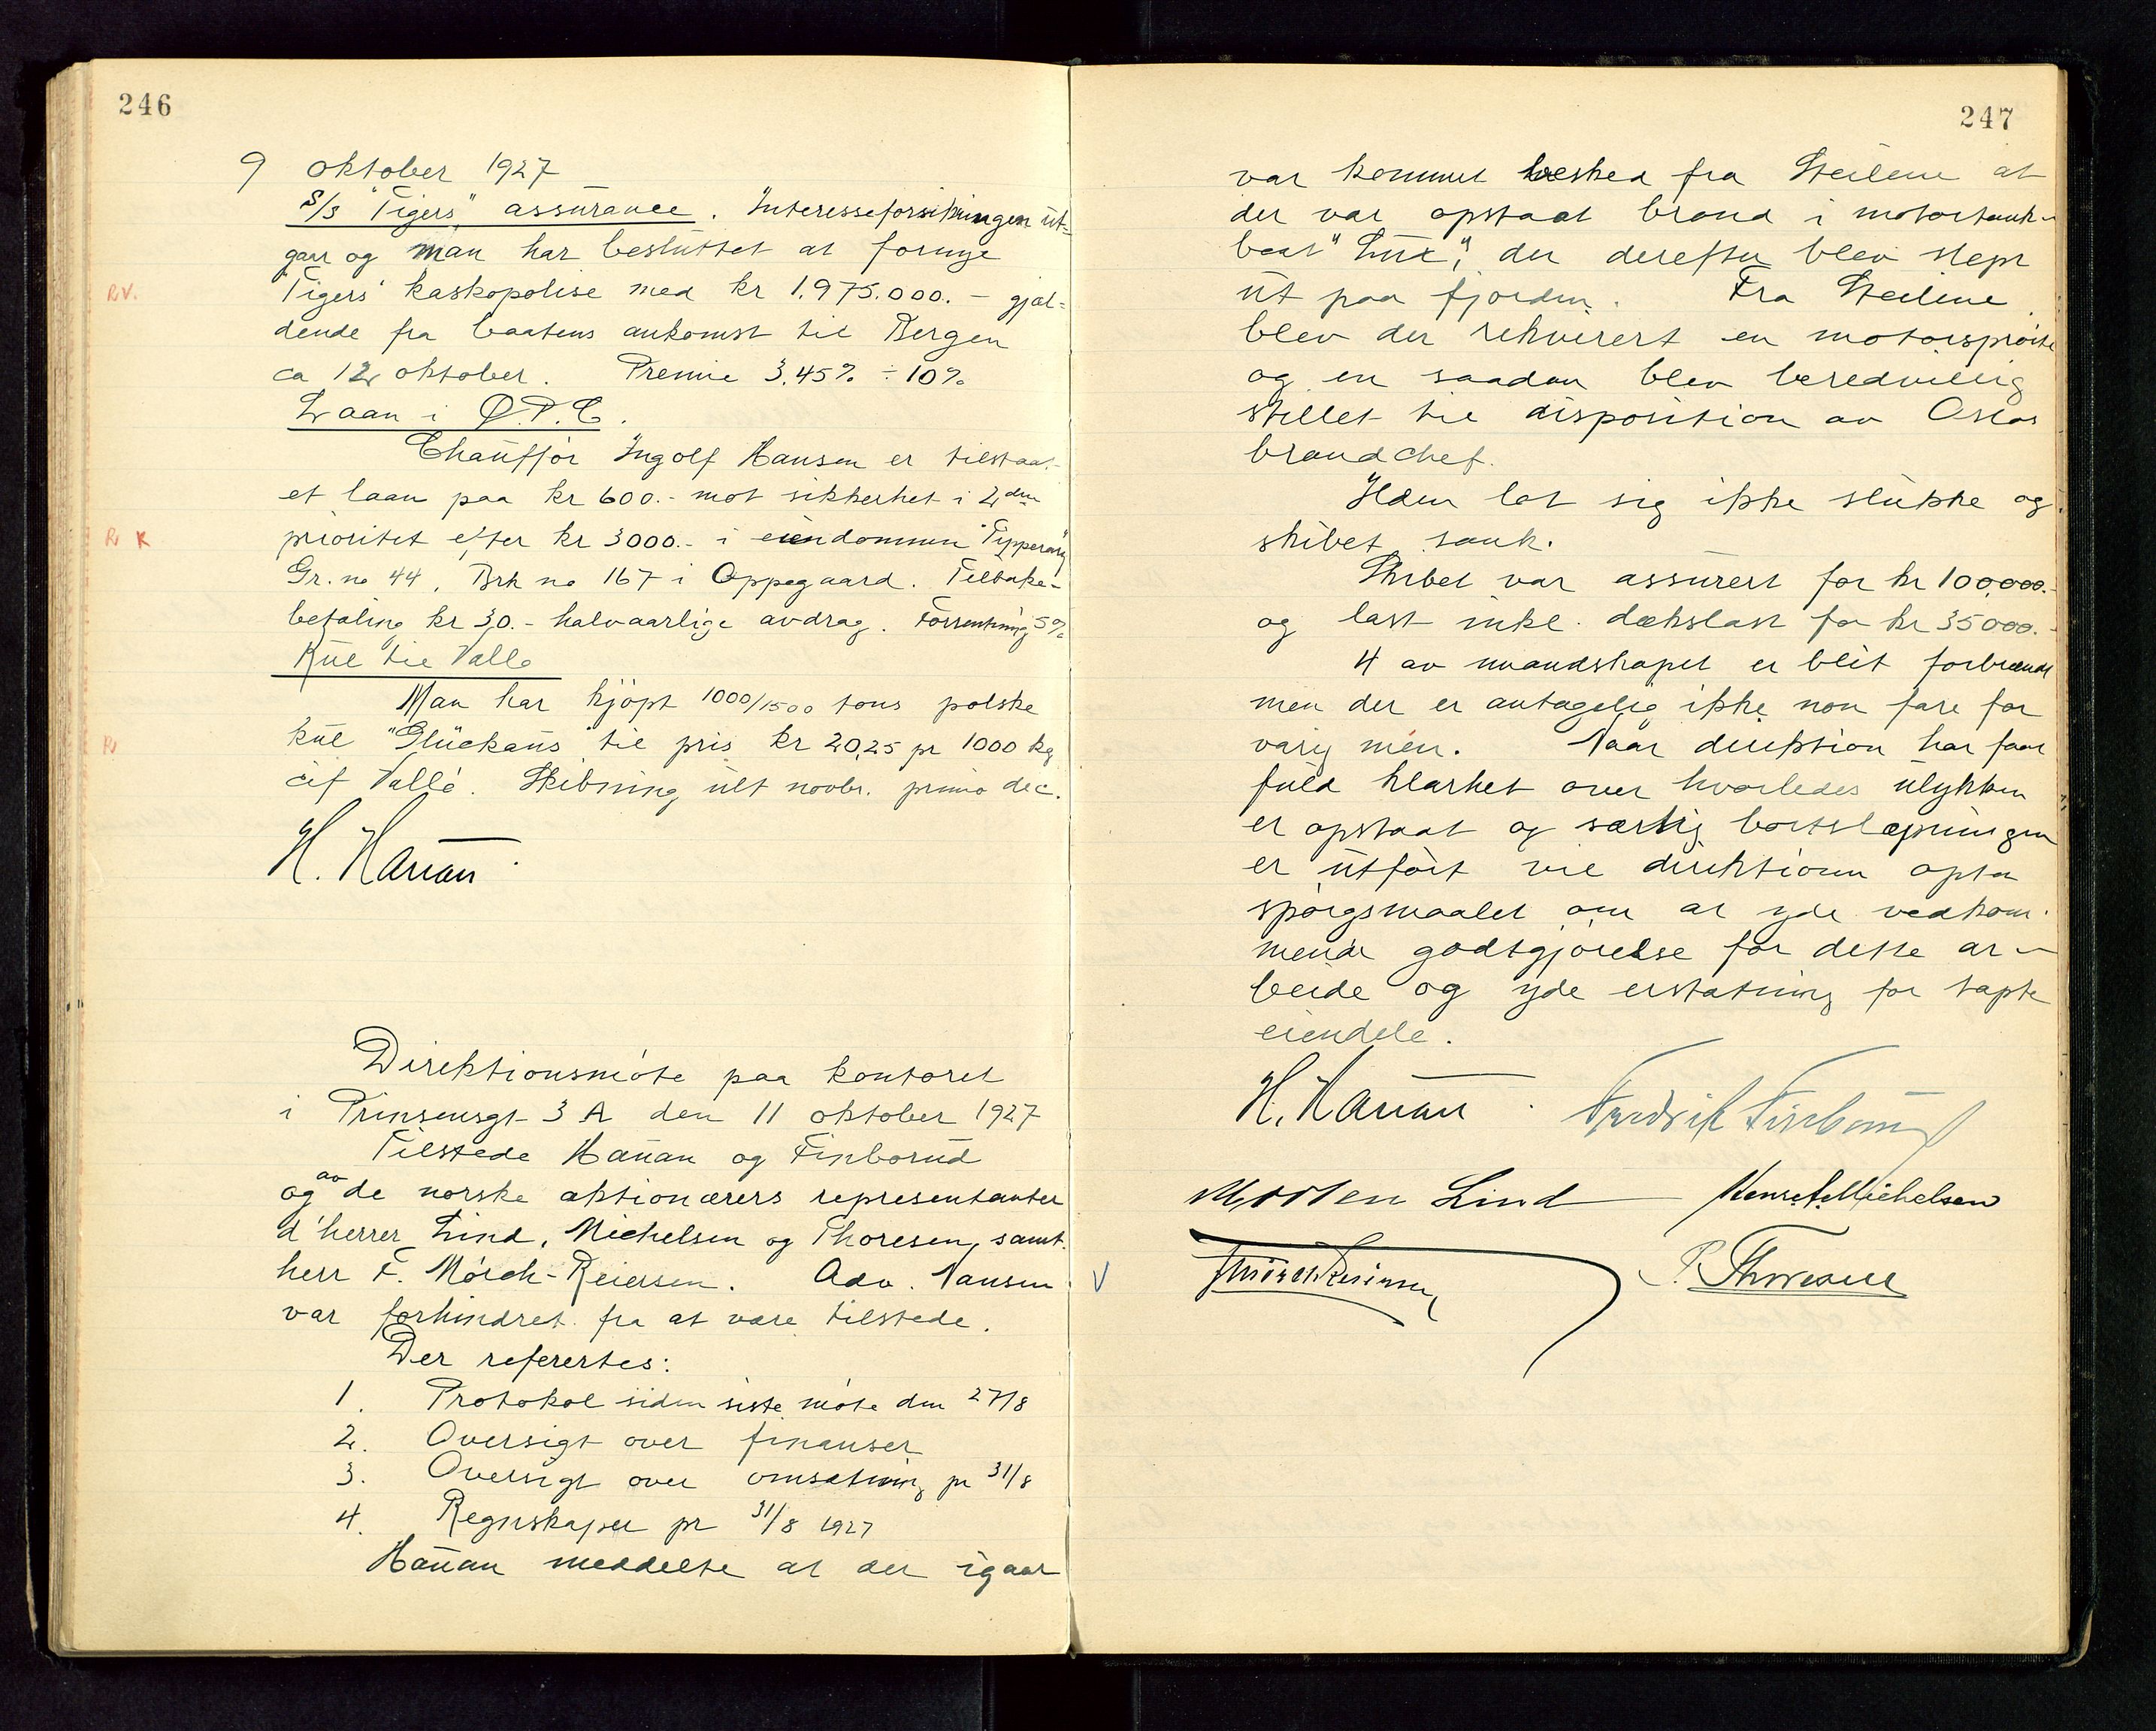 246
9 oktober 1927
S/S "Tigers" assurance. Interesseforsikringen ut-
gaar og man har besluttet at fornye
"Tigers" kaskopolise med kr 1.975.000.- gjæl-
RV.
dende fra baatens ankomst til Bergen
ca 12 oktober. Premie 3,45% ÷ 10%
Laan i Ø.P.C.
Chauffør Ingolf Hansen er tilstaa-
et laan paa kr 600.- mot sikkerhet i 2den
prioritet efter kr 3000.- i eiendommen "Tipperary"
R K
Gr. no 44, Brk no 167 i Oppegaard. Tilbake-
betaling kr 30.- halvaarlige avdrag. Forrentning 5%
Kul til Vallø
Man har kjøpt 1000/1500 tons polske
kul "Glückauf" til pris kr 20,25 pr 1000 kg
R
cif Vallø. Skibning ult novbr. primo dec.
H. Harian
Direktionsmøte paa kontoret
i Prinsensgt 3 A den 11 oktober 1927
Tilstede Hauan og Finborud
og av de norske aktionærers representanter
d'herrer Lind, Michelsen og Thoresen, samt
herr F. Mørch-Reiersen. Adv. Nansen
var forhindret fra at være tilstede.
Der refererte:
1. Protokol siden siste møte den 27/8
2. Oversigt over finanser
3. Oversigt over omsætning pr 31/8
4. Regnskaper pr 31/8 1927
Hauan meddelte at der igaar
247
var kommet besked fra Steilene at
der var opstaat brand i motortank-
baat "Lux", der derefter blev slept
ut paa fjorden. Fra Steilene
blev der rekvirert en motorsprøite
og en saadan blev beredvillig
stillet til disposition av Oslos
brandchef.
Ilden lot sig ikke slukke og
skibet sank.
Skibet var assurert for kr 100,000.-
og last inkl. dækslast for kr 35000.-
4 av mandskapet er blit forbrændt
men der er antagelig ikke non fare for
varig mén. Naar direktion har faat
fuld klarhet over hvorledes ulykken
er opstaat og særlig bortslæpningen
er utført vil direktionen opta
spørgsmaalet om at yde vedkom-
mende godtgjørelse for dette ar-
beide og yde erstatning for tapte
eiendele.
H. Hauan Fredrik Finborud
Morten Lind Henr. F. Michelsen
F Mørch Reiersen P. Thoresen